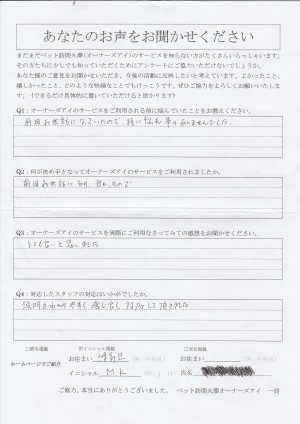 あなたのお声をお聞かせください
まだまだペット訪問火葬(オーナーズアイ)のサービスを知らない方がたくさんいらっしゃいます。
その方たちに少しでも知っていただくためにアンケートにご協力いただけないでしょうか。
あなた様のご意見をお聞かせいただき、今後の活動に反映したいと考えています。よかったこと、
嬉しかったこと、どのような些細なことでもけっこうです。ぜひご協力をよろしくお願いいたしま
す。(できるだけ具体的に書いていただけると助かります)
Q1:オーナーズアイのサービスをご利用される前に悩んでいたことをお教えください。
前回お世話になっていたので、特に悩む事はありませんでした。
Q2:何が決め手となってオーナーズアイのサービスをご利用されましたか。
前回お世話になり、良かったので
Q3:オーナーズアイのサービスを実際にご利用なさってみての感想をお聞かせください。
とても良いと思いました
Q4:対応したスタッフの対応はいかがでしたか。
説明もわかりやすく感じ良く対応して頂きました。
□匿名掲載
ホームページでご紹介
イニシャル掲載
お住まい
イニシャル M.K
□実名掲載
お住まい
氏名
ご協力、本当にありがとうございました。 ペット訪問火葬オーナーズアイ 一同